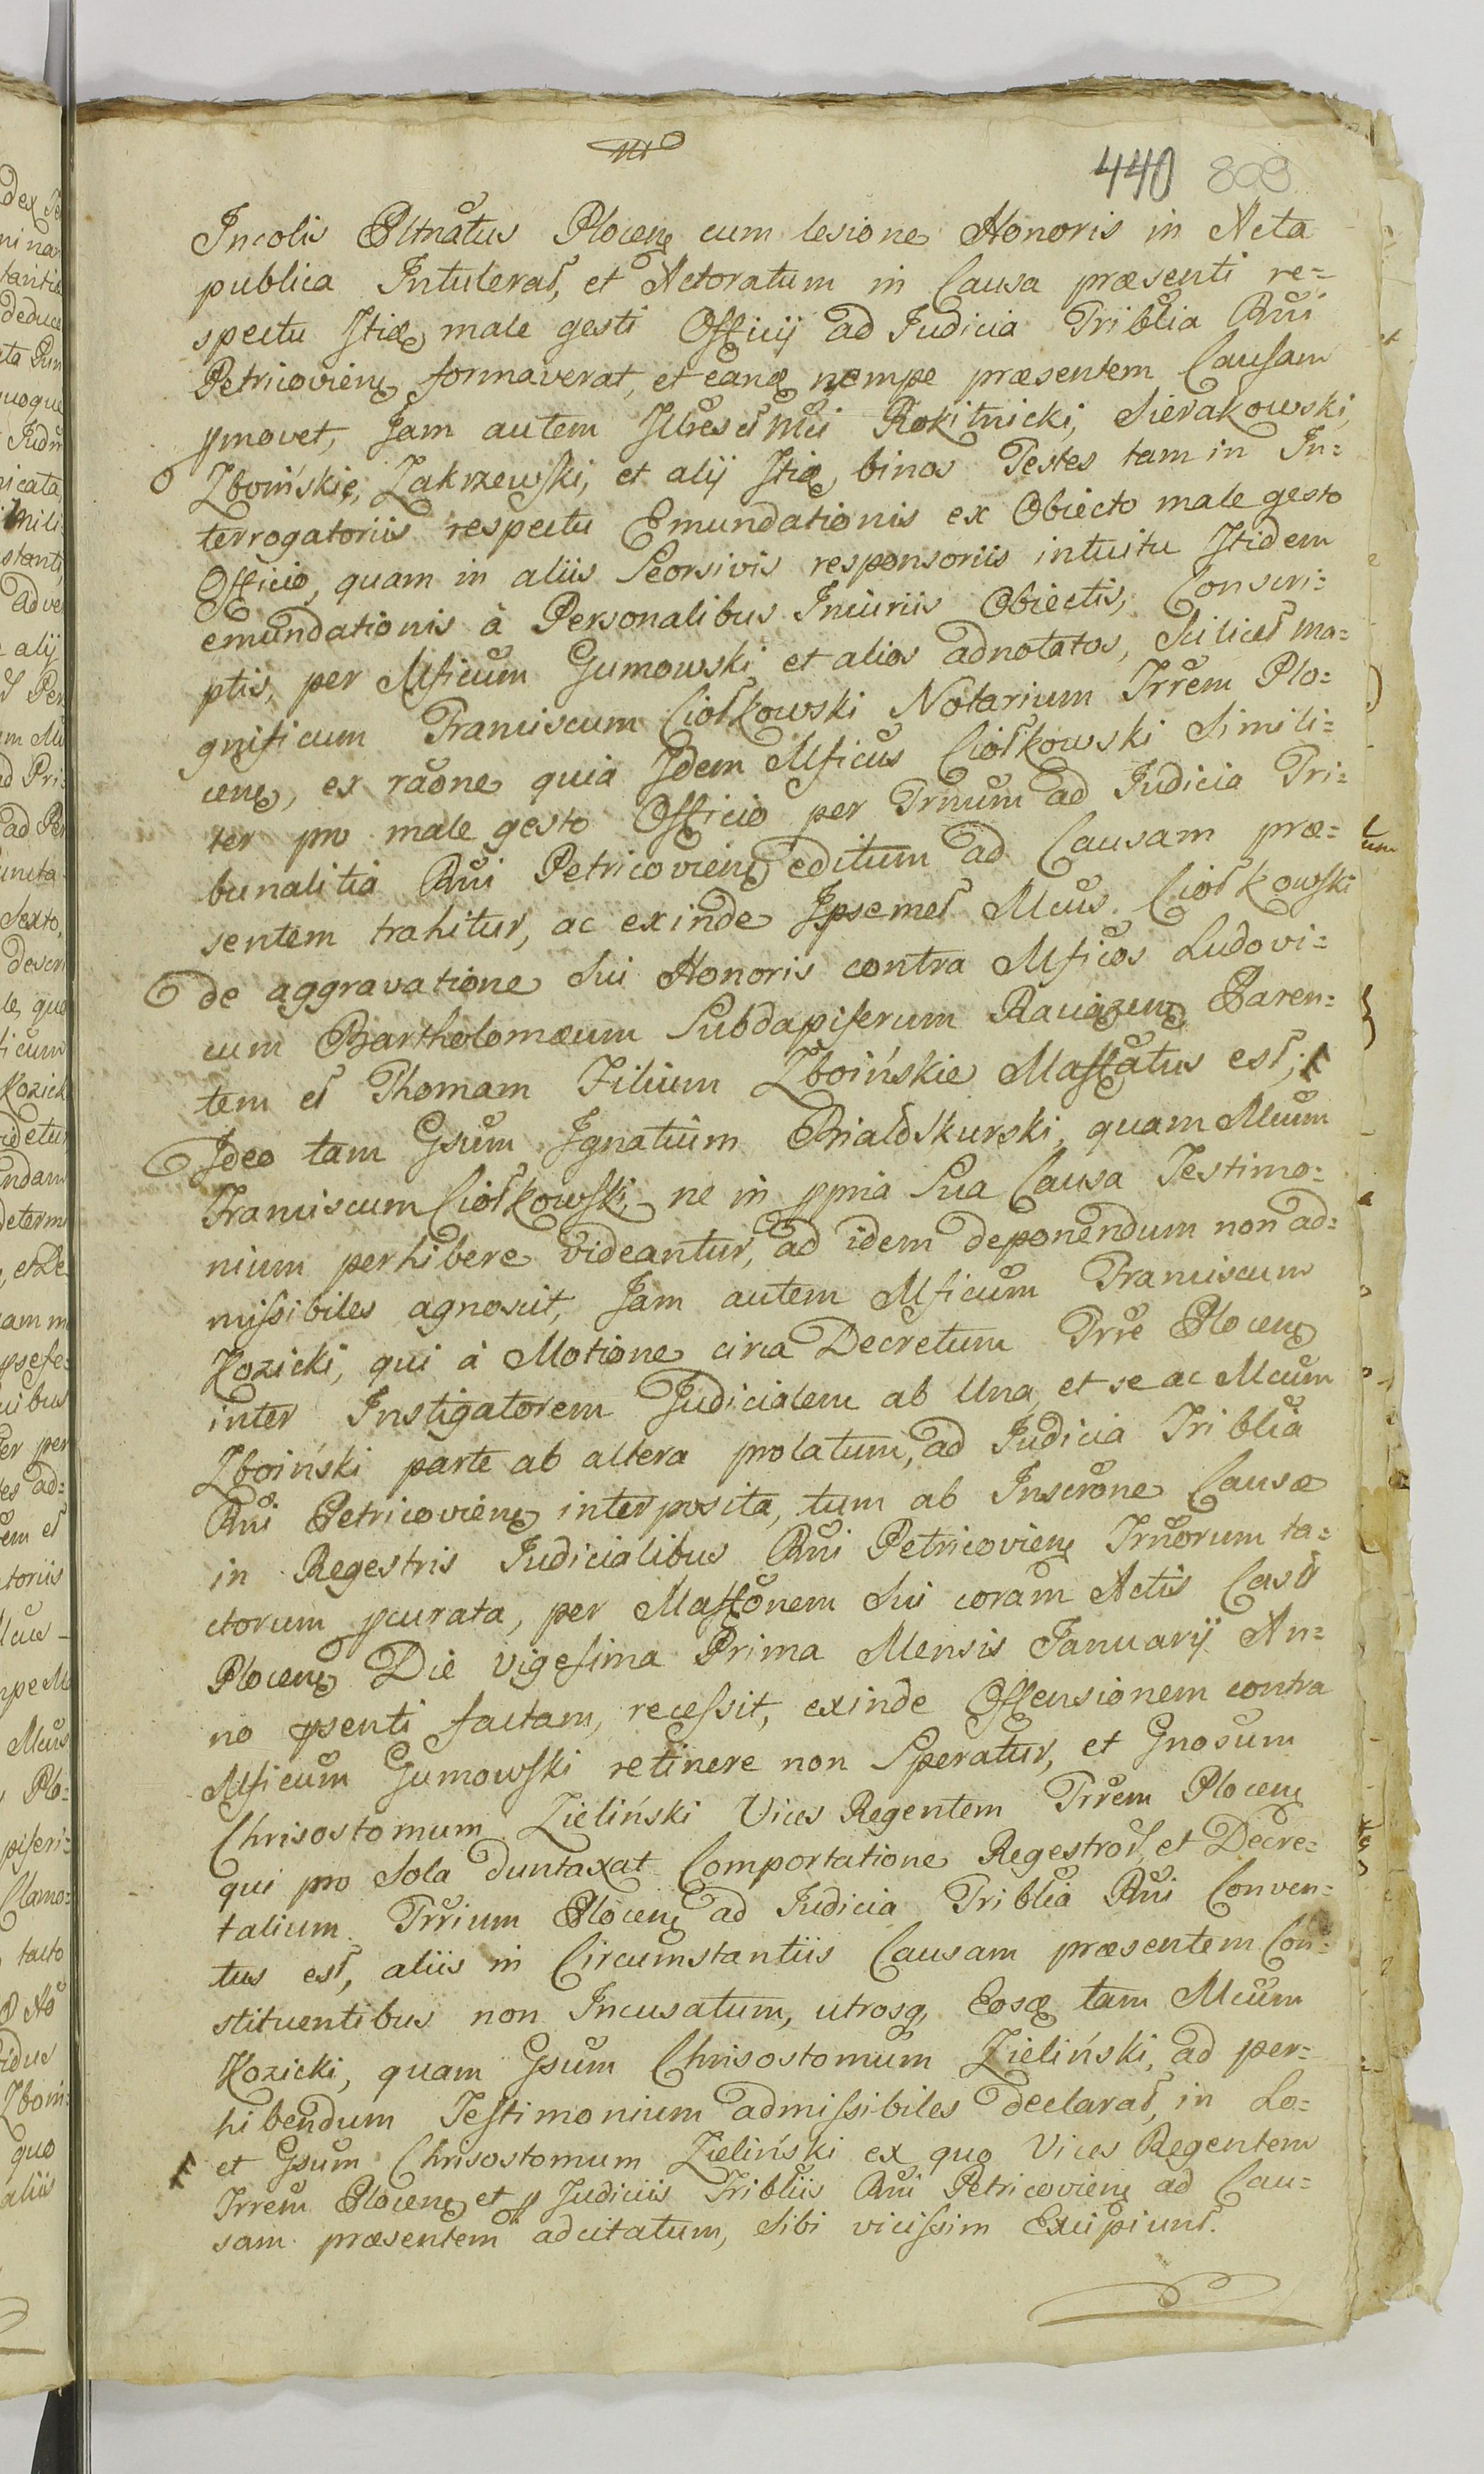 440 809
Incolis Pltnatus Plocen cum lesione Honoris in Acta
publica Intulerat, et Actoratum in Causa præsenti re=
spectu Itidē male gesti Officij ad Iudicia Triblia Rni
Petricovien formaverat, et eanq nempe præsentem Causam
pmovet, Jam autem Illres et Mci Rokitnicki, Sierakowski,
Zboińskie, Zakrzewski, et alij Itidē binos Testes tam in In=
terrogatoriis respectu Emundationis ex Obiecto male gesto
Officio, quam in aliis Seorsivis responsoriis intuitu Itidem
emundationis à Personalibus Iniuriis Obiectis, Conscri=
ptis, per Mficum Gumowski et alios adnotatos, Scilicet Ma=
gnificum Franciscum Ciołkowski Notarium Trrem Plo=
cen, ex raone quia Idem Mficus Ciołkowski Simili=
ter pro male gesto Officio per Trnum ad Iudicia Tri=
bunalitia Rni Petricovien editum ad Causam præ=
sentem trahitur, ac exinde Ipsemet Mcus Ciołkowski
de aggravatione Sui Honoris contra Mficos Ludovi=
cum Bartholomæum Subdapiferum Raciązen Paren=
tem et Thomam Filium Zboińskie Mastatus est;
Ideo tam Gsum Ignatium Białoskurski, quam Mcum
Franciscum Ciołkowski, ne in ppria Sua Causa Testimo=
nium perhibere videantur, ad idem deponendum non ad=
missibiles agnoscit, Jam autem Mficum Franciscum
Kozicki, qui à Motione circa Decretum Trre Plocen
inter Instigatorem Judicialem ab Una, et se ac Mcum
Zboiński parte ab altera prolatum, ad Iudicia Triblia
Rni Petricovien interposita, tum ab Inscrone Causæ
in Regestris Iudicialibus Rni Petricovien Trnorum ta=
ctorum pcurata, per Mastonem Sui coram Actis Casti
Plocen Die vigesima Prima Mensis Januarij An=
no psenti factam, recessit, exinde Offensionem contra
Mficum Gumowski retinere non Speratur, et Gnosum
Chrisostomum Zieliński Vices Regentem Trrem Plocen
qui pro Sola duntaxat Comportatione Regestror, et Decre=
talium Trrium Plocen ad Iudicia Triblia Rni Conven=
tus est, aliis in Circumstantiis Causam præsentem Con=
stituentibus non Incusatum, utrosq, Eosq tam Mcum
Kozicki, quam Gsum Chrisostomum Zieliński, ad per=
hibendum Testimonium admissibiles declarat, in Lo=
et Gsum Chrisostomum Zieliński ex quo Vices Regentem
Trrem Plocen et p Judiciis Tribliis Rni Petricovien ad Cau=
sam præsentem adcitatum, Sibi vicissim Excipiunt.